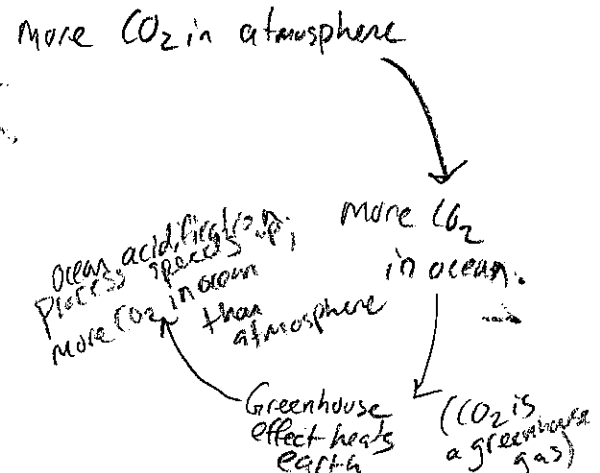 More CO2 in atmosphere
More CO2
in ocean.
Greenhouse
effect heats
earth
(CO2 is
a greenhouse
gas)
ocean acidification
process speeds up;
more CO2 in ocean
than
atmosphere